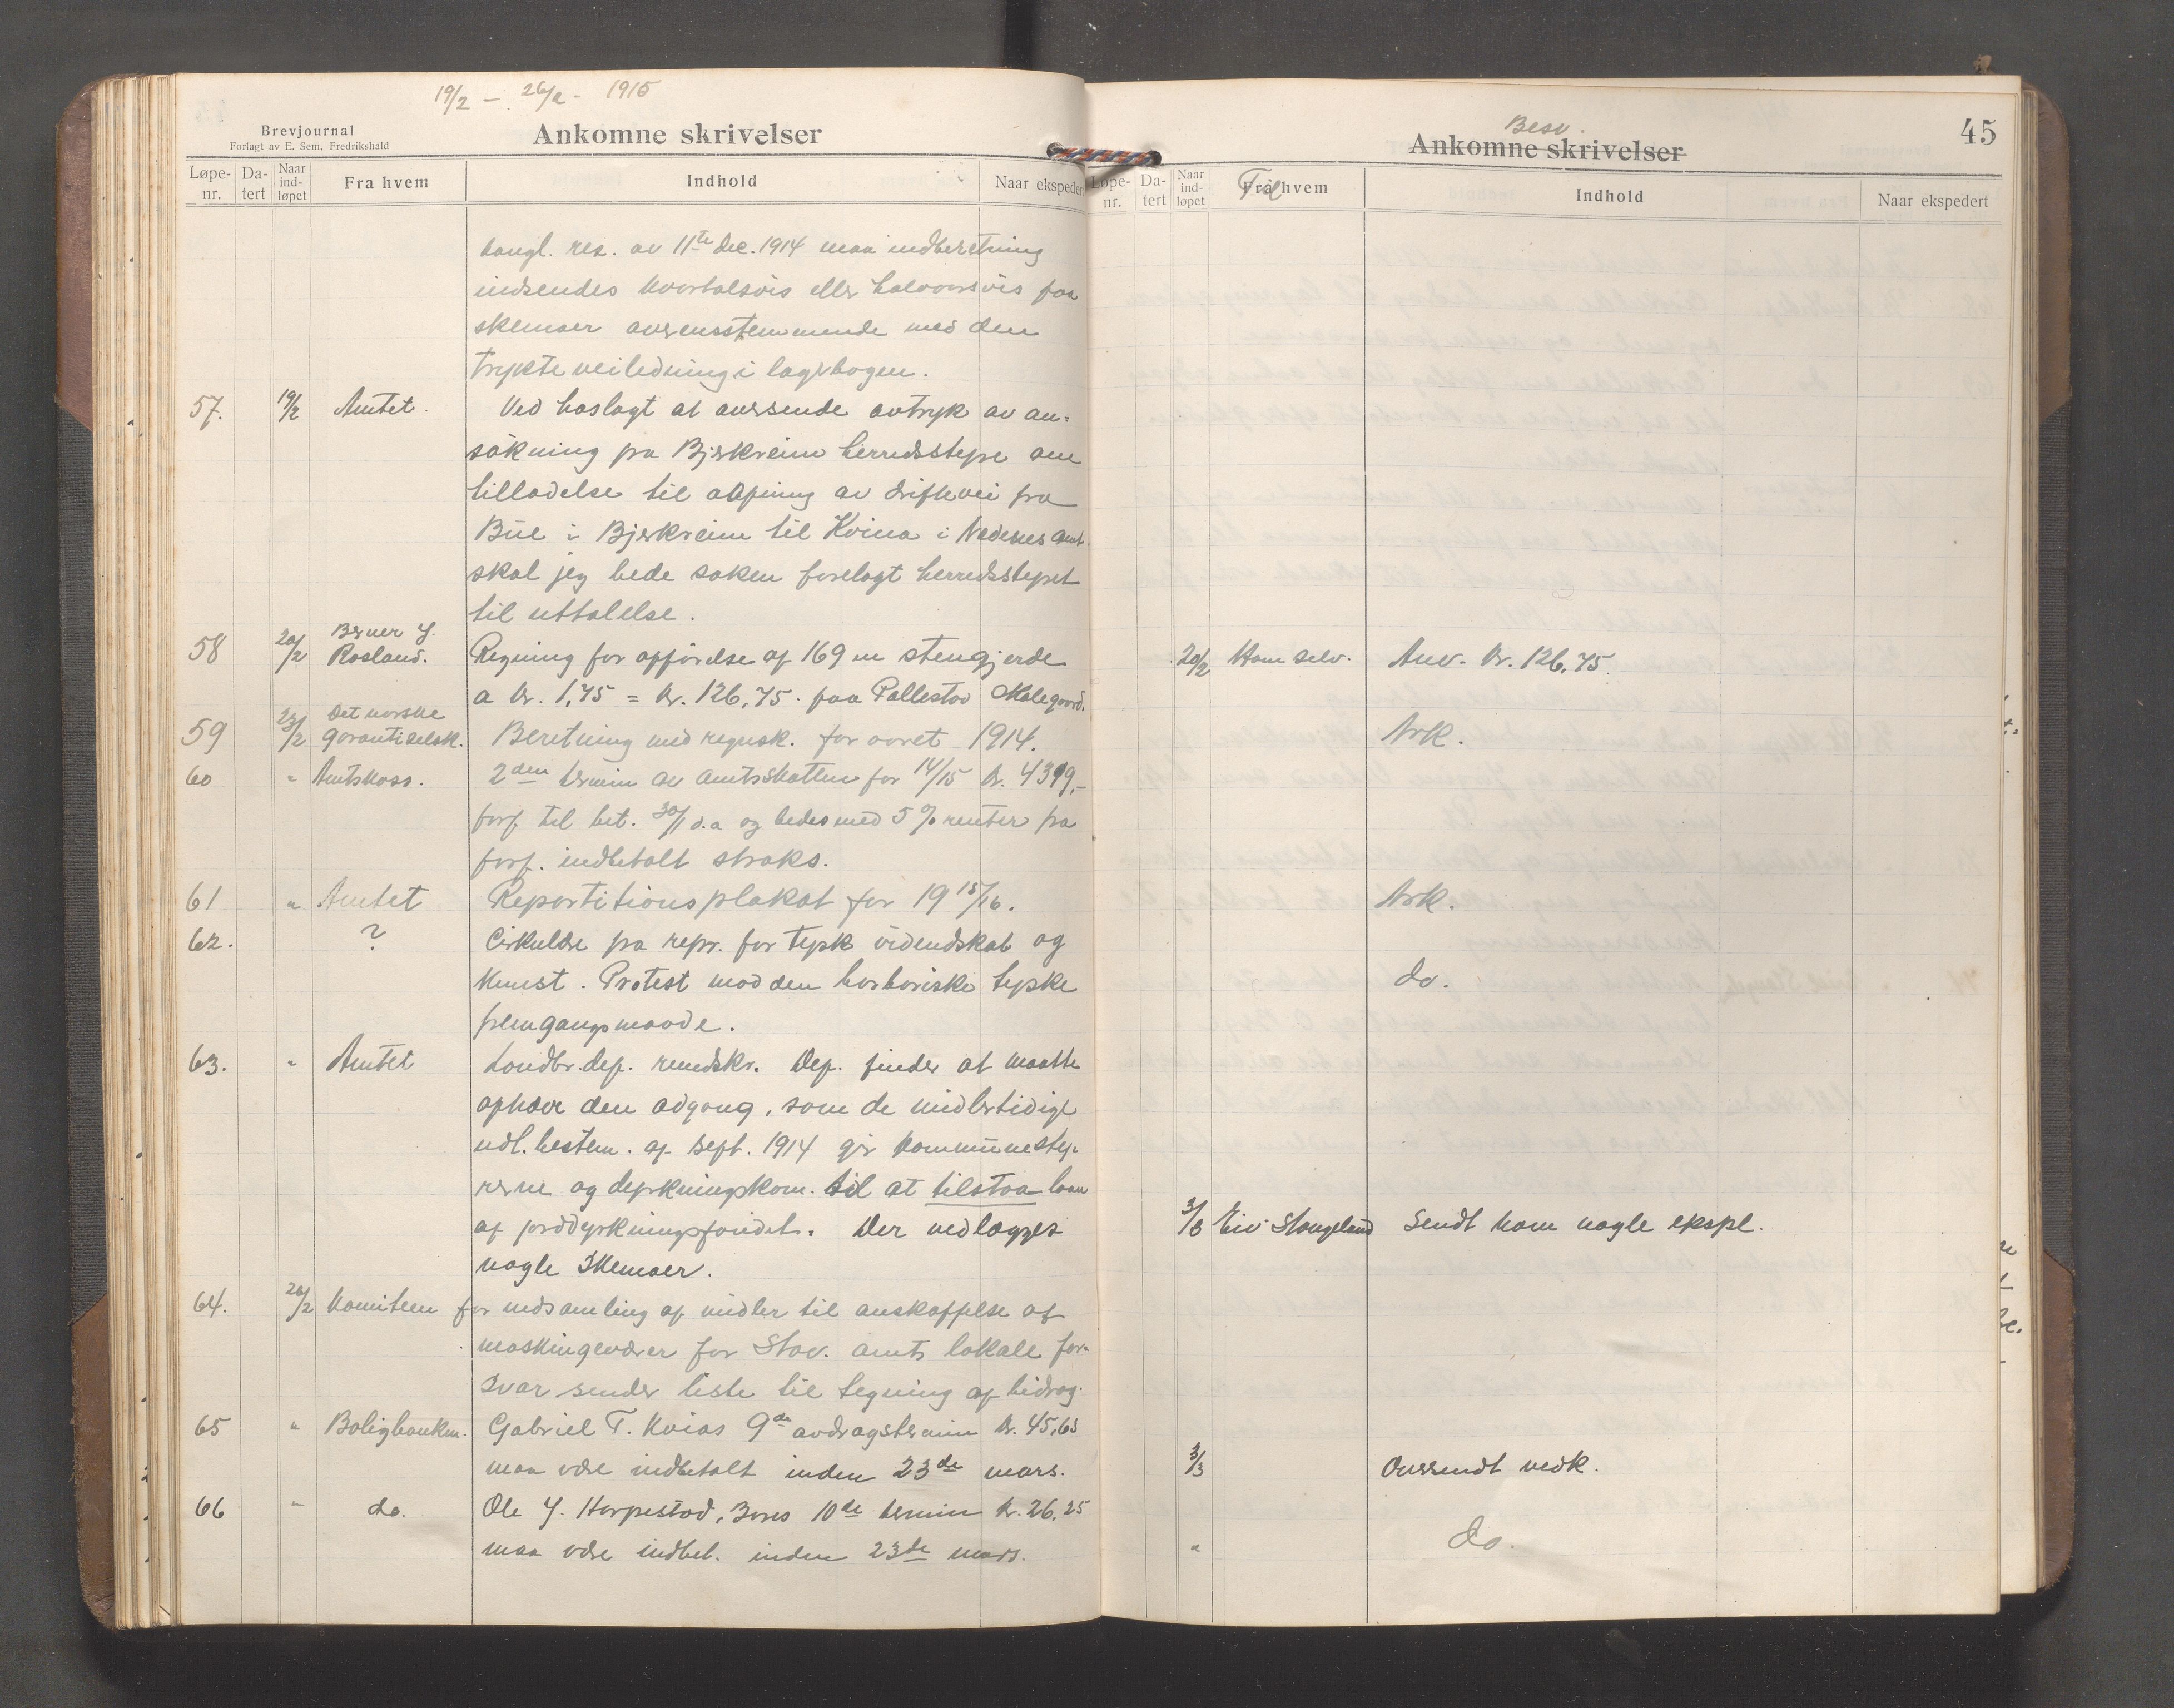 19/2 – 26/2 - 1915
Brevjournal
Forlagt av E. Sem, Fredrikshald
Ankomne skrivelser
Løpe-nr. Da-tert Naar ind-løpet Fra hvem Indhold Naar ekspedert
kongl. res. av 11te dec. 1914 maa indberetning
indsendes kvartalsvis eller halvaarsvis paa
skemaer overensstemmende med den
trykte veiledning i lagerbogen.
57. 19/2 Amtet. Ved hoslagt at oversende avtryk av an-
søkning fra Bjerkreim herredsstyre om
tilladelse til aapning av driftevei fra
Bue i Bjerkreim til Kvina i Nedenes amt.
skal jeg bede saken forelagt herredsstyret
til uttalelse.
58 20/2 Berner J. Rosland. Regning for opførelse af 169 m stengjerde
a kr. 1,75 = kr. 126,75. paa Pallestad Skolegaard.
59 23/2 Det norske garantiselsk. Beretning med regnsk. for aaret 1914.
60 " Amtskass. 2den termin av amtsskatten for 14/15 kr. 4399,-
forf. til bet. 30/1 d.a og bedes med 5 % renter fra
forf. indbetalt straks.
61 " Amtet Repartitionsplakat for 19 15/16.
62. ? Cirkulære fra repr. for tysk videndskab og
kunst. Protest mod den barbariske tyske
fremgangsmaade.
63. " Amtet Landbr.dep. rundskr. Dep. finder at maatte
ophæve den adgang, som de midlertidige
udl. bestem. af sept. 1914 gir kommunesty-
rerne og dyrkningskom. til at tilstaa laan
af jorddyrkningsfondet. Der vedlægges
nogle Skemaer.
64. 26/2 Komiteen for indsamling af midler til anskaffelse af
maskingeværer for Stav. amts lokale for-
svar sender liste til tegning af bidrag.
65 " Boligbanken. Gabriel T. Kvias 9de avdragstermin kr. 45,65
maa være indbetalt inden 23de mars.
66 " do. Ole J. Harpestad, Bores 10de termin kr. 26,25
maa være indbet. inden 23de mars.
45
Besv.
Ankomne skrivelser
Løpe-nr. Da-tert Naar ind-løpet Fra hvem Til Indhold Naar ekspedert
20/2 Ham selv. Anv. kr. 126,75.
Ark.
Ark.
do.
3/3 Eiv. Stangeland Sendt ham nogle ekspl.
3/3 Oversendt vedk.
" do.